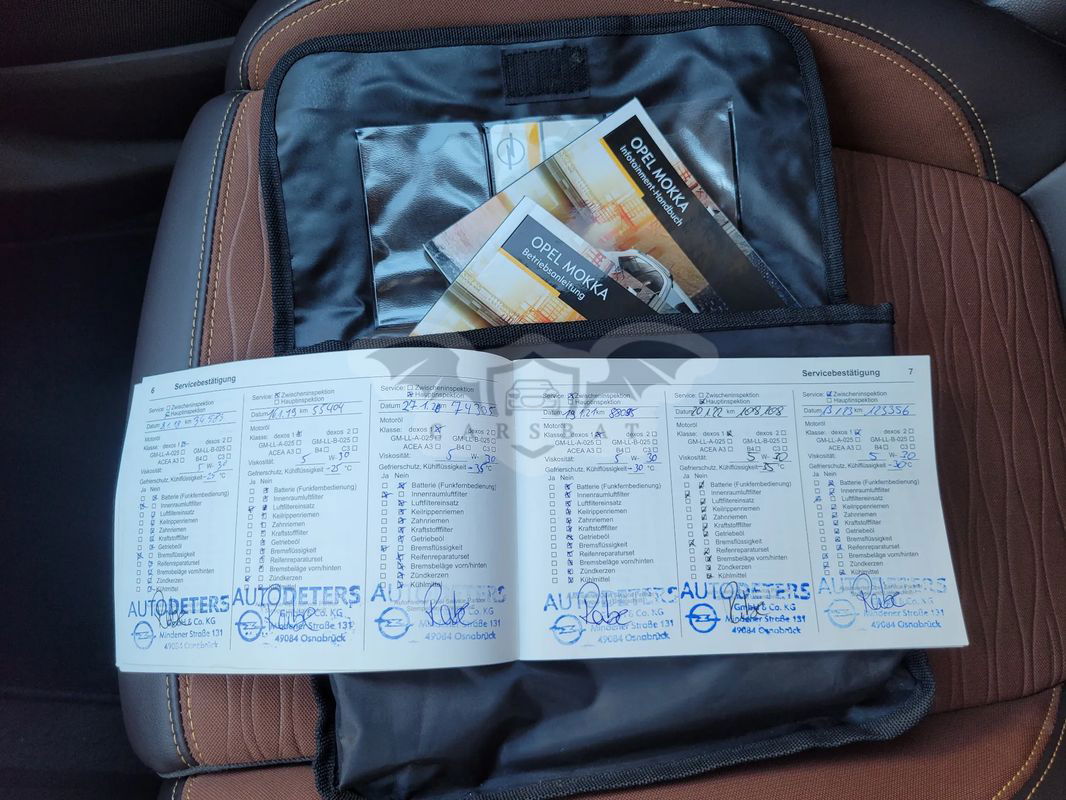 OPEL MOKKA
Infotainment-Handbuch
OPEL MOKKA
Betriebsanleitung
ARSBAT
6 Servicebestätigung
Service: Zwischeninspektion
Hauptinspektion
Datum km
Motoröl
Klasse: dexos 1 dexos 2
GM-LL-A-025 GM-LL-B-025
ACEA A3 B4 C3
Viskosität: 5 W- 30
Gefrierschutz, Kühlflüssigkeit -25 °C
Ja Nein
Batterie (Funkfernbedienung)
Innenraumluftfilter
Luftfiltereinsatz
Keilrippenriemen
Zahnriemen
Kraftstofffilter
Getriebeöl
Bremsflüssigkeit
Reifenreparaturset
Bremsbeläge vorn/hinten
Zündkerzen
Kühlmittel
AUTODETERS
GmbH & Co. KG
Mindener Straße 131
49084 Osnabrück
Service: Zwischeninspektion
Hauptinspektion
Datum km 55404
Motoröl
Klasse: dexos 1 dexos 2
GM-LL-A-025 GM-LL-B-025
ACEA A3 B4 C3
Viskosität: 5 W- 30
Gefrierschutz, Kühlflüssigkeit -25 °C
Ja Nein
Batterie (Funkfernbedienung)
Innenraumluftfilter
Luftfiltereinsatz
Keilrippenriemen
Zahnriemen
Kraftstofffilter
Getriebeöl
Bremsflüssigkeit
Reifenreparaturset
Bremsbeläge vorn/hinten
Zündkerzen
Kühlmittel
AUTODETERS
GmbH & Co. KG
Mindener Straße 131
49084 Osnabrück
Service: Zwischeninspektion
Hauptinspektion
Datum 27.1.20 km 74305
Motoröl
Klasse: dexos 1 dexos 2
GM-LL-A-025 GM-LL-B-025
ACEA A3 B4 C3
Viskosität: 5 W- 30
Gefrierschutz, Kühlflüssigkeit -35 °C
Ja Nein
Batterie (Funkfernbedienung)
Innenraumluftfilter
Luftfiltereinsatz
Keilrippenriemen
Zahnriemen
Kraftstofffilter
Getriebeöl
Bremsflüssigkeit
Reifenreparaturset
Bremsbeläge vorn/hinten
Zündkerzen
Kühlmittel
AUTODETERS
GmbH & Co. KG
Mindener Straße 131
49084 Osnabrück
Servicebestätigung 7
Service: Zwischeninspektion
Hauptinspektion
Datum 19.1.21 km 88095
Motoröl
Klasse: dexos 1 dexos 2
GM-LL-A-025 GM-LL-B-025
ACEA A3 B4 C3
Viskosität: 5 W- 30
Gefrierschutz, Kühlflüssigkeit -30 °C
Ja Nein
Batterie (Funkfernbedienung)
Innenraumluftfilter
Luftfiltereinsatz
Keilrippenriemen
Zahnriemen
Kraftstofffilter
Getriebeöl
Bremsflüssigkeit
Reifenreparaturset
Bremsbeläge vorn/hinten
Zündkerzen
Kühlmittel
AUTODETERS
GmbH & Co. KG
Mindener Straße 131
49084 Osnabrück
Service: Zwischeninspektion
Hauptinspektion
Datum 20.1.22 km 108108
Motoröl
Klasse: dexos 1 dexos 2
GM-LL-A-025 GM-LL-B-025
ACEA A3 B4 C3
Viskosität: 5 W- 30
Gefrierschutz, Kühlflüssigkeit °C
Ja Nein
Batterie (Funkfernbedienung)
Innenraumluftfilter
Luftfiltereinsatz
Keilrippenriemen
Zahnriemen
Kraftstofffilter
Getriebeöl
Bremsflüssigkeit
Reifenreparaturset
Bremsbeläge vorn/hinten
Zündkerzen
Kühlmittel
AUTODETERS
GmbH & Co. KG
Mindener Straße 131
49084 Osnabrück
Service: Zwischeninspektion
Hauptinspektion
Datum km 123356
Motoröl
Klasse: dexos 1 dexos 2
GM-LL-A-025 GM-LL-B-025
ACEA A3 B4 C3
Viskosität: 5 W- 30
Gefrierschutz, Kühlflüssigkeit -30 °C
Ja Nein
Batterie (Funkfernbedienung)
Innenraumluftfilter
Luftfiltereinsatz
Keilrippenriemen
Zahnriemen
Kraftstofffilter
Getriebeöl
Bremsflüssigkeit
Reifenreparaturset
Bremsbeläge vorn/hinten
Zündkerzen
Kühlmittel
AUTODETERS
GmbH & Co. KG
Mindener Straße 131
49084 Osnabrück